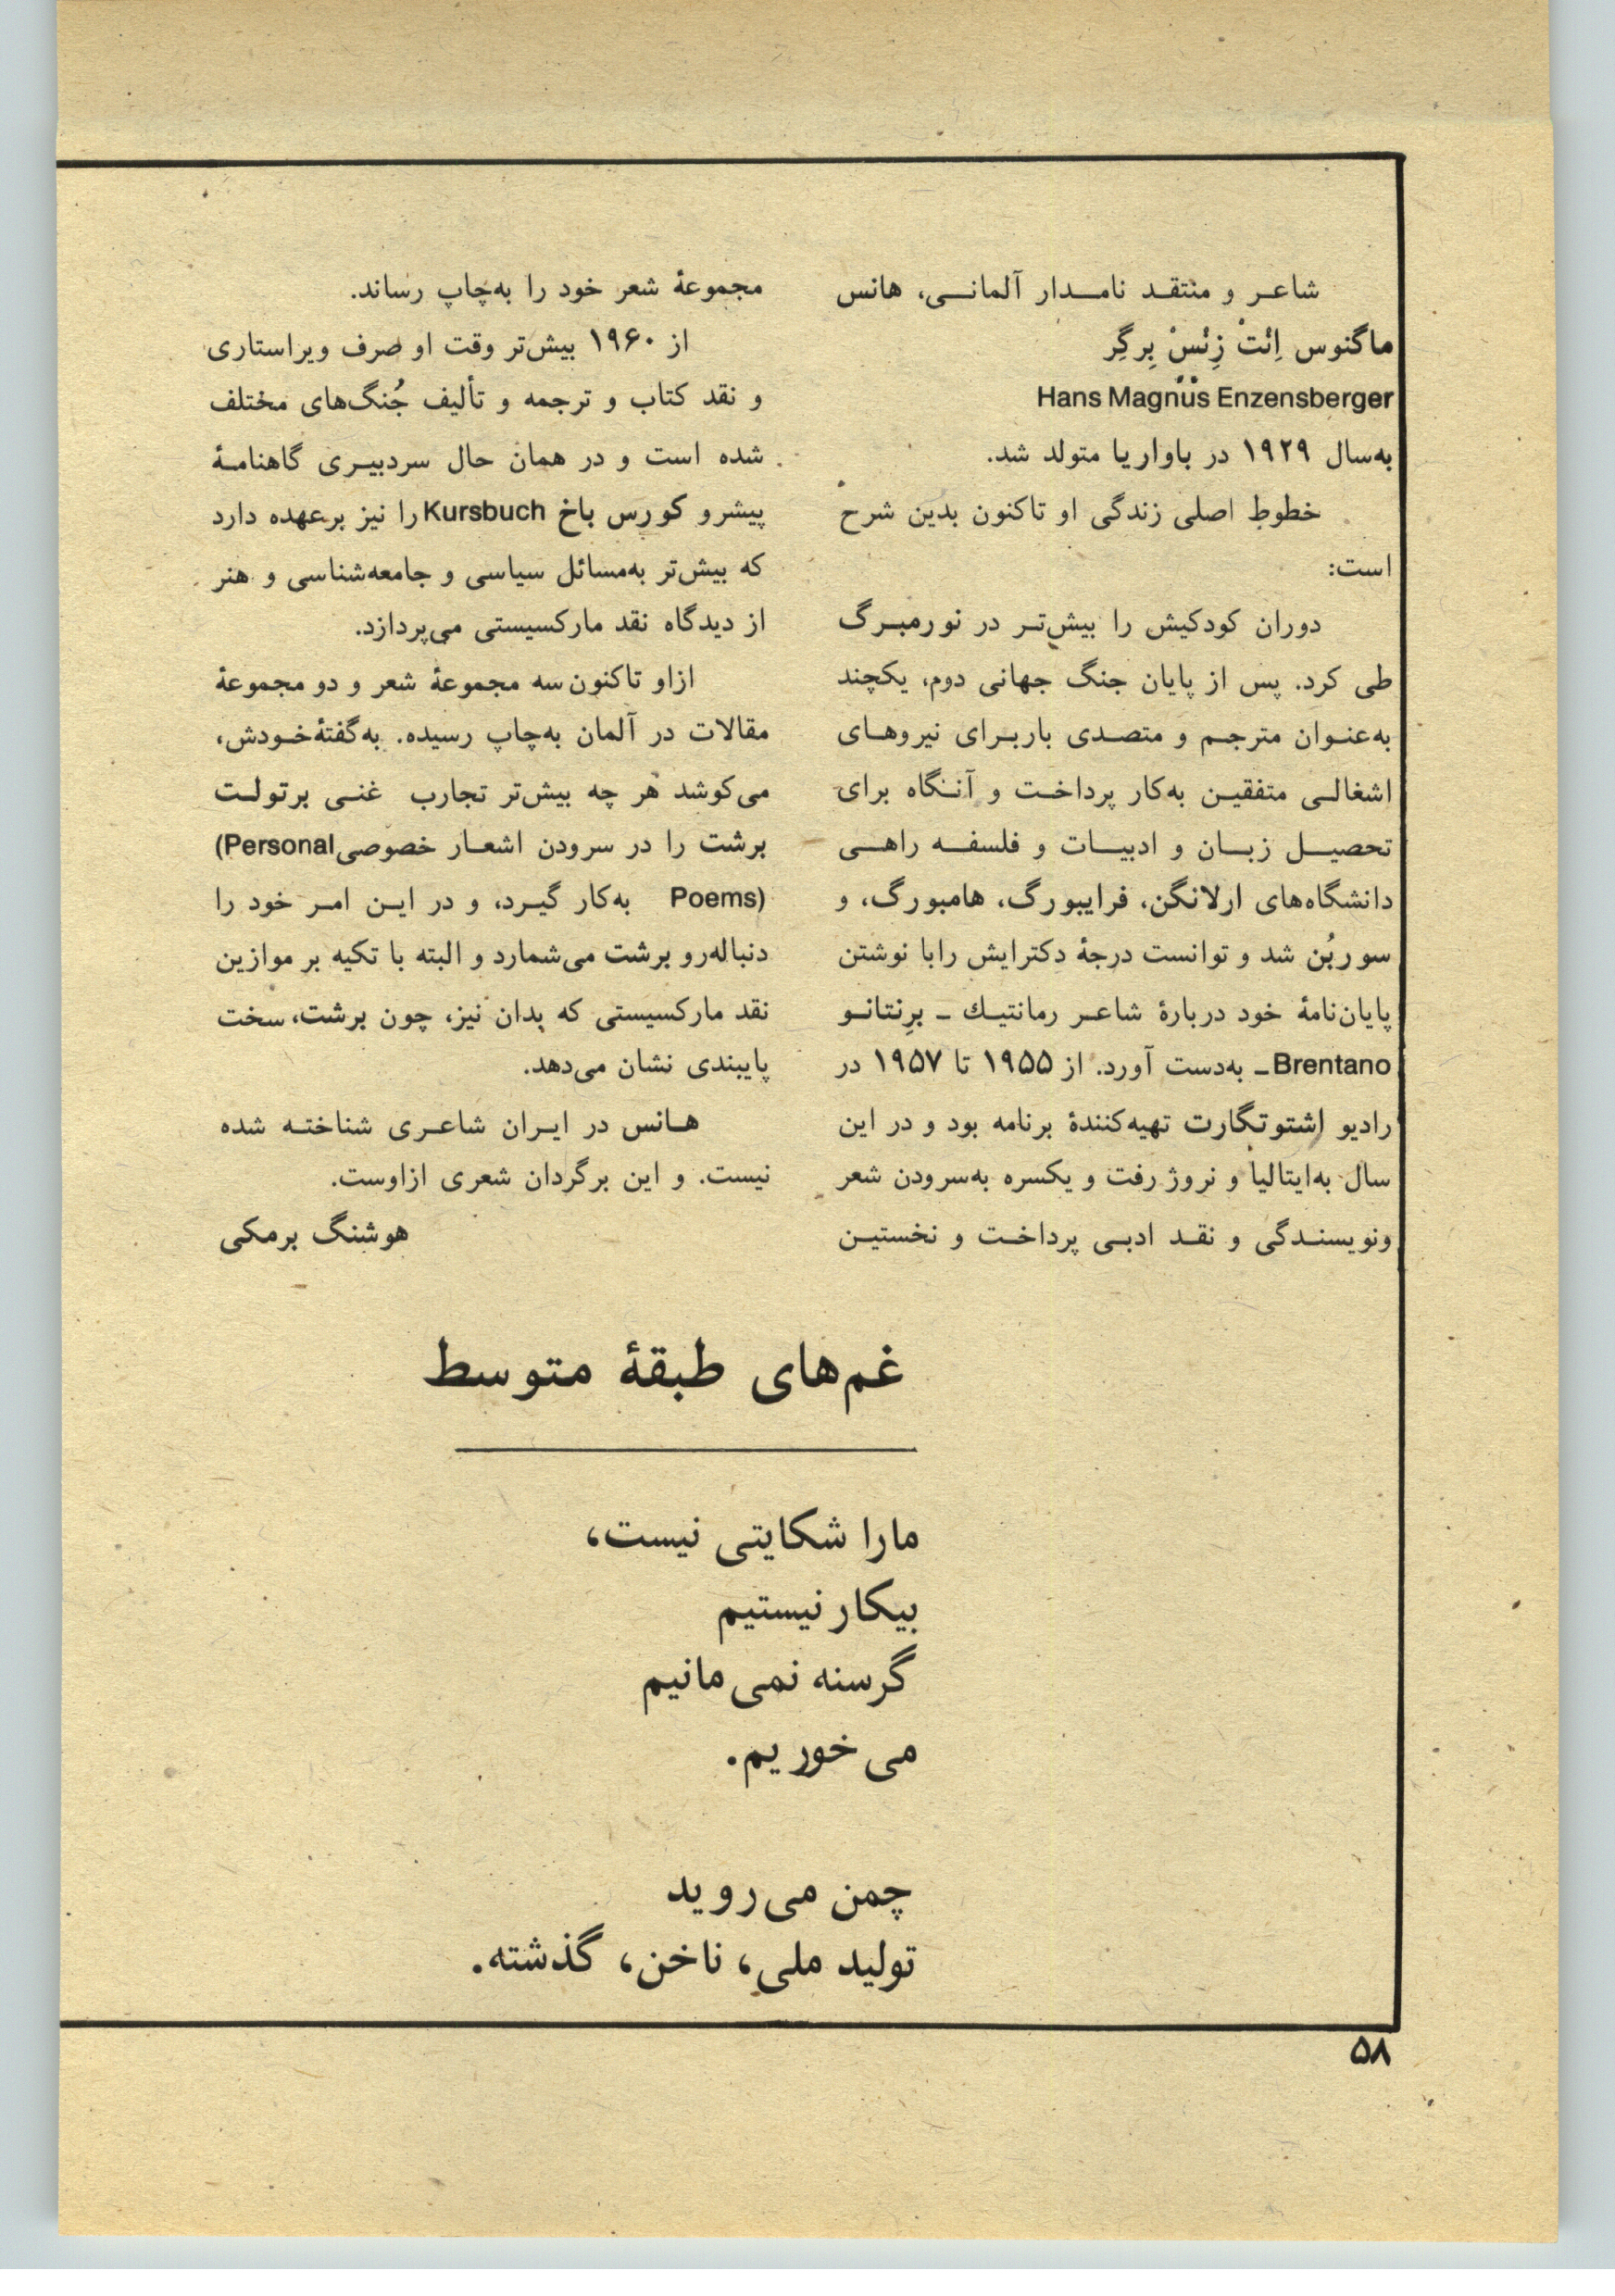 شاعر و منتقد نامدار آلمانی، هانس
ماگنوس اِنْتْ زِنْسْ بِرگِر
Hans Magnus Enzensberger
به‌سال ۱۹۲۹ در باواریا متولد شد.
خطوطِ اصلی زندگی او تاکنون بدین شرح
است:
دوران کودکیش را بیش‌تر در نورمبرگ
طی کرد. پس از پایان جنگ جهانی دوم، یکچند
به‌عنوان مترجم و متصدی باربرای نیروهای
اشغالی متفقین به‌کار پرداخت و آنگاه برای
تحصیل زبان و ادبیات و فلسفه راهی
دانشگاه‌های ارلانگن، فرایبورگ، هامبورگ، و
سوربُن شد و توانست درجهٔ دکترایش رابا نوشتن
پایان‌نامهٔ خود دربارهٔ شاعر رمانتیك ـ برِنتانو
Brentano ـ به‌دست آورد. از ۱۹۵۵ تا ۱۹۵۷ در
رادیو اشتوتگارت تهیه‌کنندهٔ برنامه بود و در این
سال به‌ایتالیا و نروژ رفت و یکسره به‌سرودن شعر
ونویسندگی و نقد ادبی پرداخت و نخستین
مجموعهٔ شعر خود را به‌چاپ رساند.
از ۱۹۶۰ بیش‌تر وقت او صرف ویراستاری
و نقد کتاب و ترجمه و تألیف جُنگ‌های مختلف
شده است و در همان حال سردبیری گاهنامهٔ
پیشرو کورس باخ Kursbuch را نیز برعهده دارد
که بیش‌تر به‌مسائل سیاسی و جامعه‌شناسی و هنر
از دیدگاه نقد مارکسیستی می‌پردازد.
ازاو تاکنون سه مجموعهٔ شعر و دو مجموعهٔ
مقالات در آلمان به‌چاپ رسیده. به‌گفتهٔ‌خودش،
می‌کوشد هر چه بیش‌تر تجارب غنی برتولت
برشت را در سرودن اشعار خصوصی (Personal
Poems) به‌کار گیرد، و در این امر خود را
دنباله‌رو برشت می‌شمارد و البته با تکیه بر موازین
نقد مارکسیستی که بدان نیز، چون برشت، سخت
پایبندی نشان می‌دهد.
هانس در ایران شاعری شناخته شده
نیست. و این برگردان شعری ازاوست.
هوشنگ برمکی
غم‌های طبقهٔ متوسط
مارا شکایتی نیست،
بیکار نیستیم
گرسنه نمی‌مانیم
می‌خوریم.
چمن می‌روید
تولید ملی، ناخن، گذشته.
۵۸